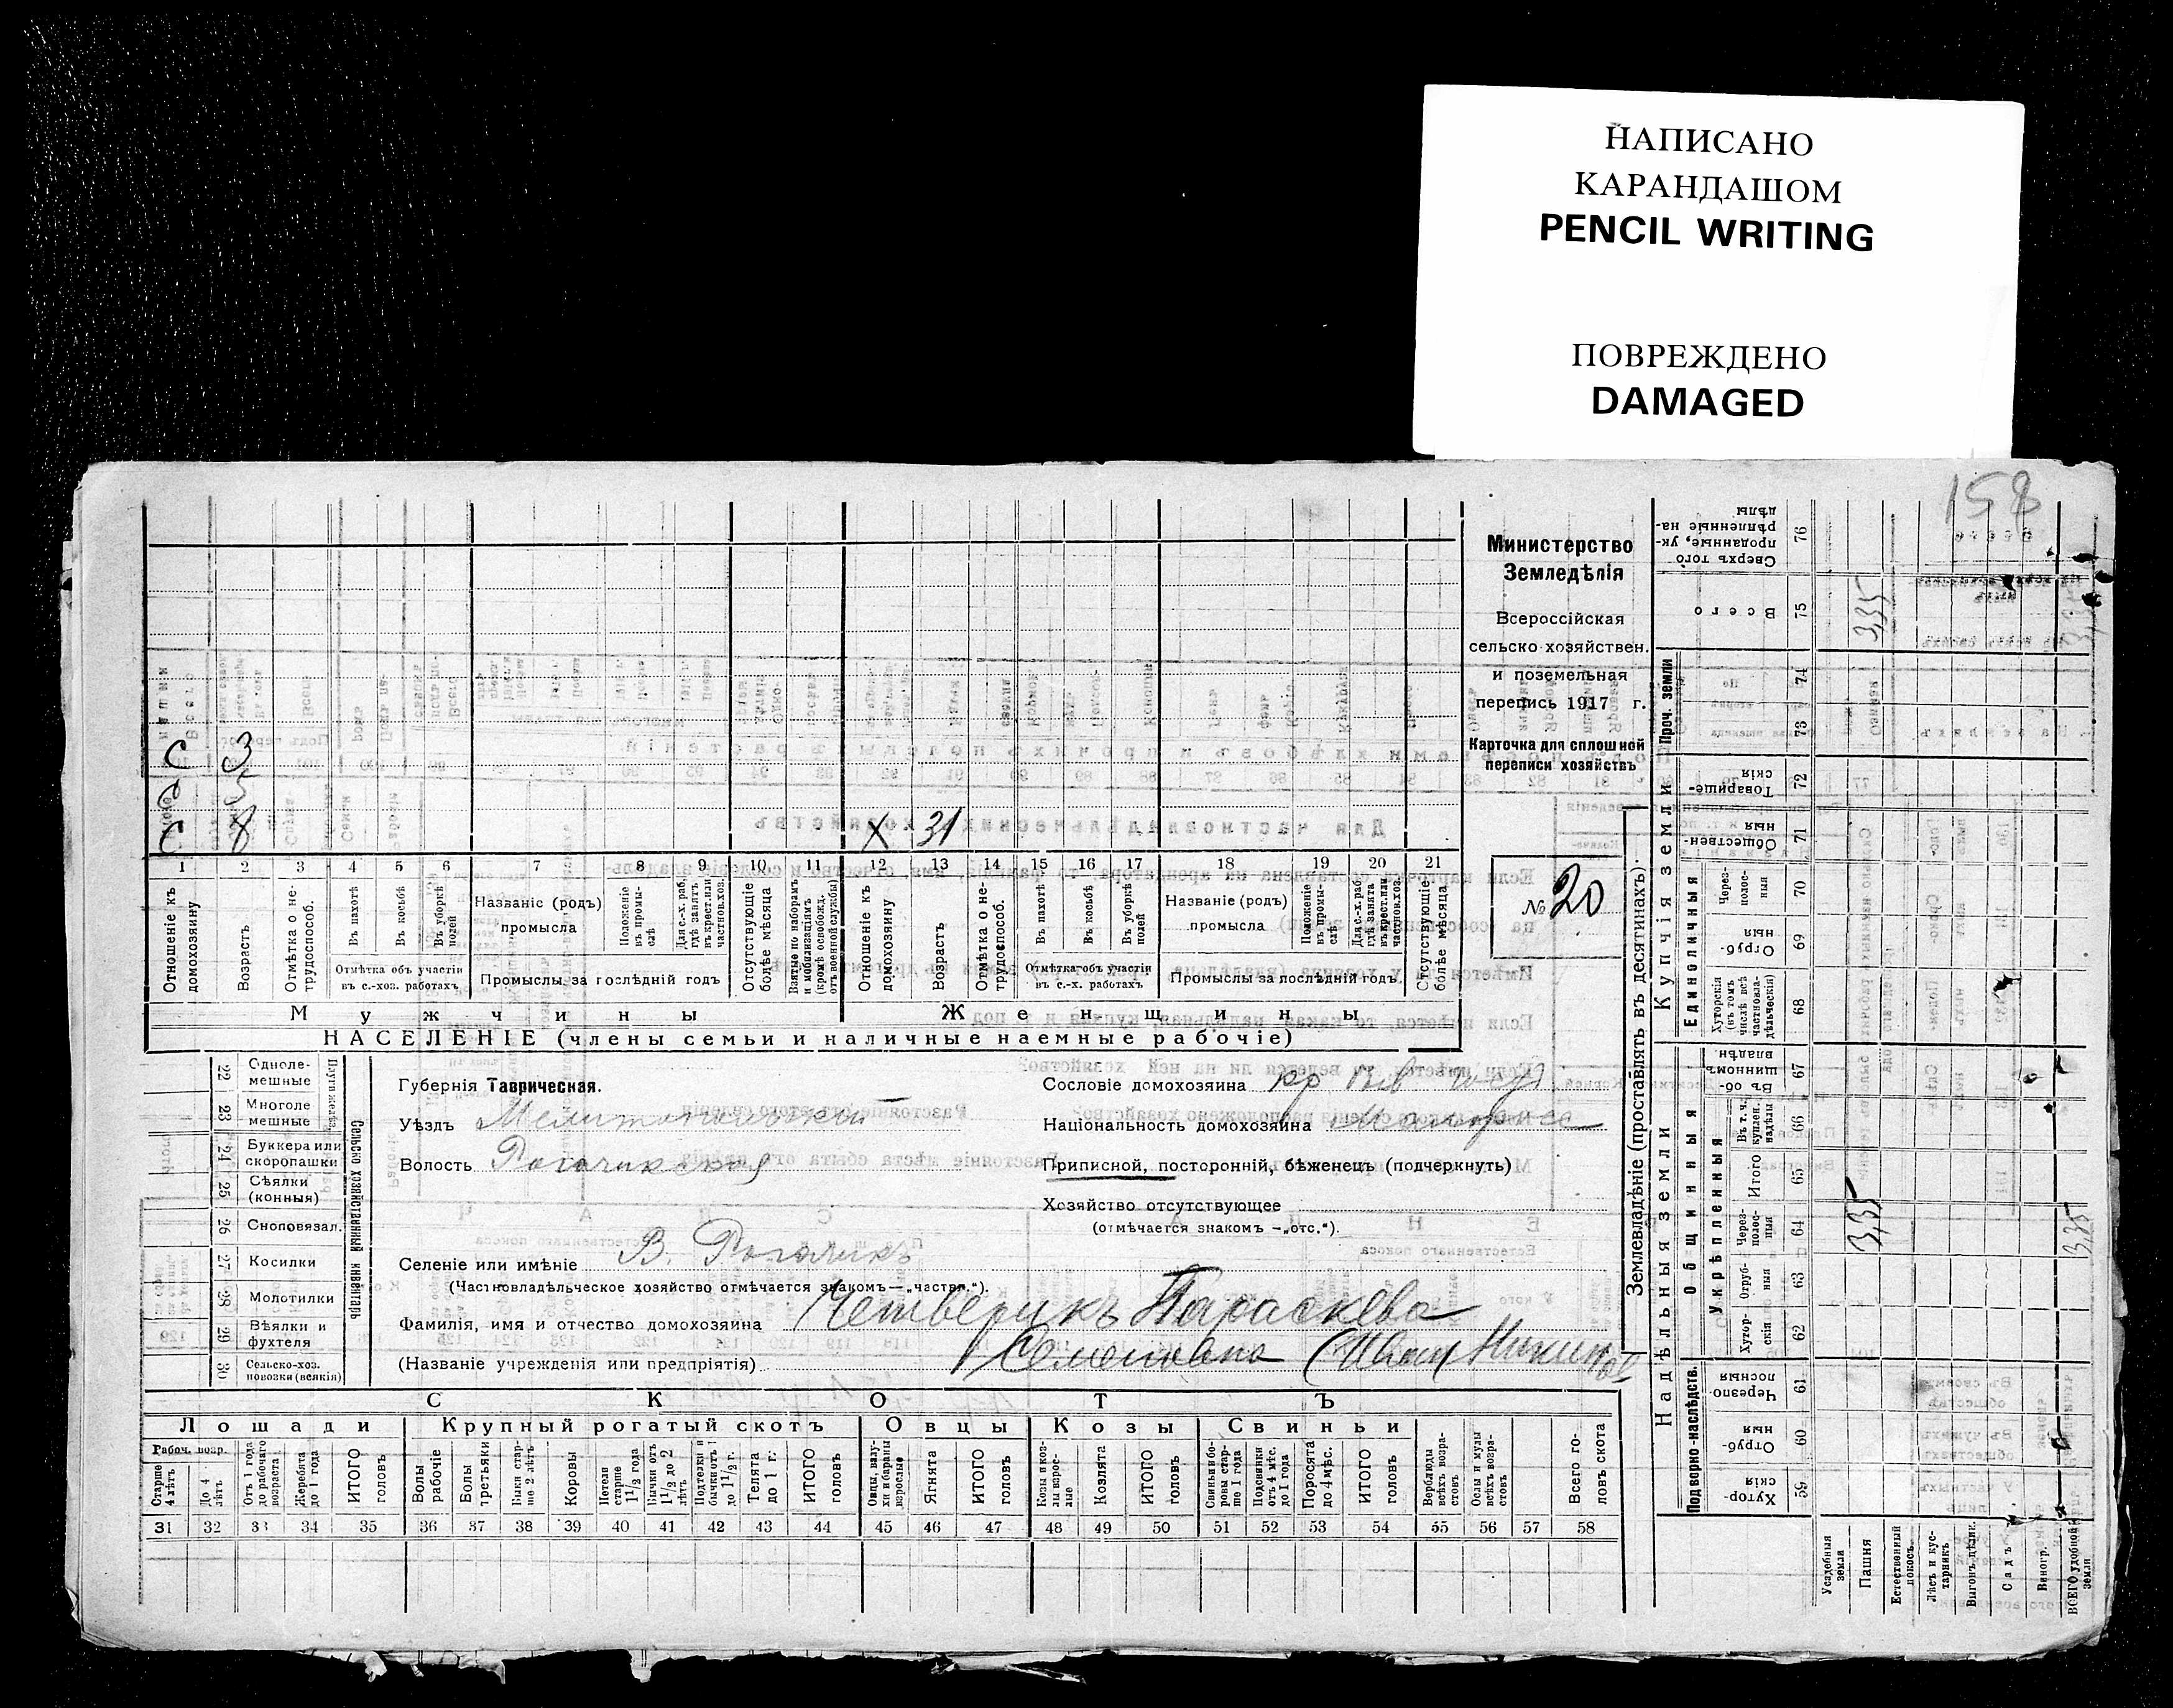 НАПИСАНО
КАРАНДАШОМ
PENCIL WRITING
ПОВРЕЖДЕНО
DAMAGED
158
Министерство
Земледѣлія
Всероссійская
сельско хозяйствен.
и поземельная
перепись 1917 г.
Карточка для сплошной
переписи хозяйствъ
№ 20
с 3
с 5
с 8
х 31
1 2 3 4 5 6 7 8 9 10 11 12 13 14 15 16 17 18 19 20 21
Отношеніе къ домохозяину
Возрастъ
Отмѣтка о не-трудоспособ.
Въ пахотѣ
Въ косьбѣ
Въ уборкѣ полей
Отмѣтка объ участіи въ с.-хоз. работахъ
Названіе (родъ) промысла
Положеніе въ промы-слѣ
Для с.-х. раб. гдѣ занятъ въ крест. или частнов. хоз.
Промыслы за послѣдній годъ
Отсутствующіе болѣе мѣсяца
Взятые по наборамъ и мобилизаціямъ (кромѣ освобожд. отъ военной службы)
Отношеніе къ домохозяину
Возрастъ
Отмѣтка о не-трудоспособ.
Въ пахотѣ
Въ косьбѣ
Въ уборкѣ полей
Отмѣтка объ участіи въ с.-х. работахъ
Названіе (родъ) промысла
Положеніе въ промы-слѣ
Для с.-х. раб. гдѣ занята въ крест. или частнов. хоз.
Промыслы за послѣдній годъ
Отсутствующіе болѣе мѣсяца
Мужчины
Женщины
НАСЕЛЕНІЕ (члены семьи и наличные наемные рабочіе)
Сельско хозяйственный инвентарь
22 Одноле-мешные
23 Многоле мешные
24 Буккера или скоропашки
25 Сѣялки (конныя)
26 Сноповязал.
27 Косилки
28 Молотилки
29 Вѣялки и фухтеля
30 Сельско-хоз. повозки (всякія)
Губернія Таврическая.
Уѣздъ Мелитопольскій
Волость Рогачикская
Селеніе или имѣніе В. Рогачикъ
(Частновладѣльческое хозяйство отмѣчается знакомъ—„частн.“).
Фамилія, имя и отчество домохозяина Четверикъ Параскева
(Названіе учрежденія или предпріятія) Семеновна (Иван Никитов
Сословіе домохозяина кр быв госуд
Національность домохозяина Малоросс
Приписной, посторонній, бѣженецъ (подчеркнуть)
Хозяйство отсутствующее
(отмѣчается знакомъ —„отс.“).
СКОТЪ
Лошади
Крупный рогатый скотъ
Овцы
Козы
Свиньи
Рабоч. возр.
Старше 4 лѣтъ
До 4 лѣтъ
Отъ 1 года до рабочаго возраста
Жеребята до 1 года
ИТОГО головъ
Волы рабочіе
Волы третьяки
Быки стар-ше 2 лѣтъ
Коровы
Нетели старше 1 1/2 года
Бычки отъ 1 1/2 до 2 лѣтъ
Подтелки и бычки отъ 1 до 1 1/2 г.
Телята до 1 г.
ИТОГО головъ
Овцы, валу-хи и бараны взрослые
Ягнята
ИТОГО головъ
Козы и коз-лы взрос-лые
Козлята
ИТОГО головъ
Свиньи и бо-ровы стар-ше 1 года
Подсвинки отъ 4 мѣс. до 1 года
Поросята до 4 мѣс.
ИТОГО головъ
Верблюды всѣхъ возра-стовъ
Ослы и мулы всѣхъ возра-стовъ
Всего го-ловъ скота
31 32 33 34 35 36 37 38 39 40 41 42 43 44 45 46 47 48 49 50 51 52 53 54 55 56 57 58
Землевладѣніе (проставлять въ десятинахъ).
Надѣльныя земли
Купчія земли
Проч. земли
Подворно-наслѣдств.
Общинныя
Укрѣпленныя
Единоличныя
Хутор-скія 59
Отруб-ныя 60
Черезпо лосныя 61
Хутор-скія 62
Отруб-ныя 63
Через-полос-ныя 64
Итого 65
Въ т. ч. куплен. надѣлы 66
Въ об-щинномъ владѣн. 67
Хуторскія (въ томъ числѣ всѣ частновла-дѣльческія) 68
Отруб-ныя 69
Через-полос-ныя 70
Обществен-ныя 71
Товарище-скія 72
73
74
Всего 75
Сверхъ того проданные, ук-рѣпленные на-дѣлы 76
Усадебныя земли
Пашня
3,35
3,35
Естественный покосъ
Лѣсъ и кус-тарникъ
Выгонъ
Садъ
Виногр.
ВСЕГО удобной земли